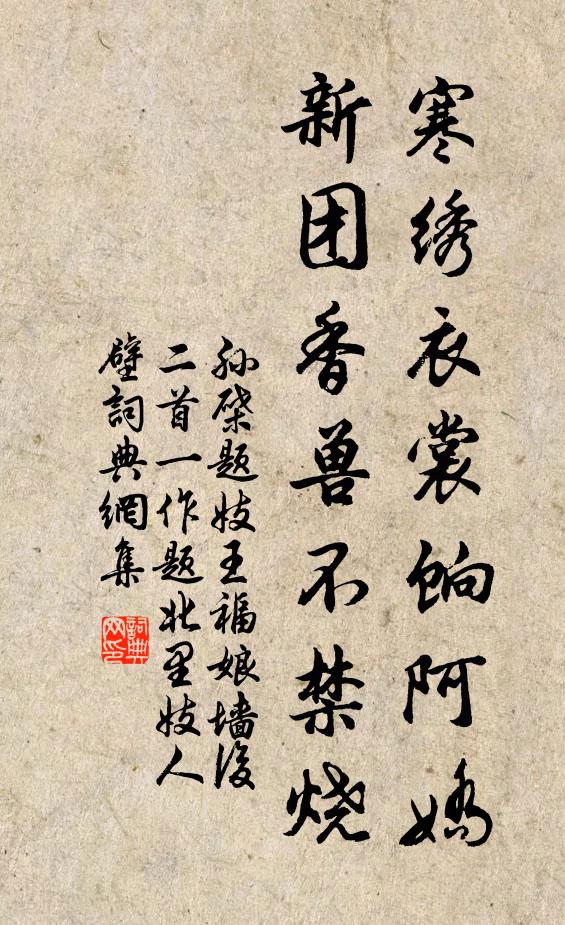 寒绣衣裳饷阿娇
新团香兽不禁烧
孙棨题妓王福娘墙後
二首一作题北里妓人
壁詞典網集
詞典网印